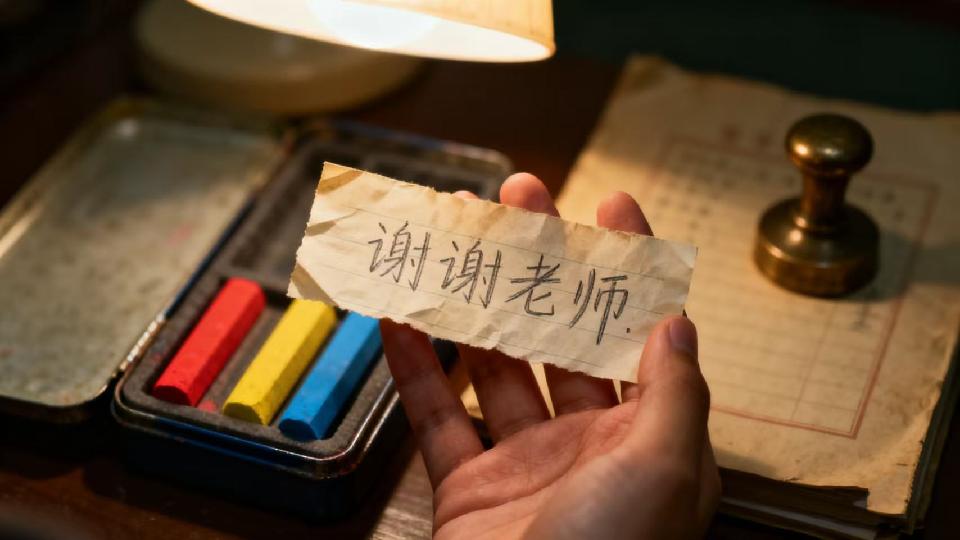 谢谢老师.